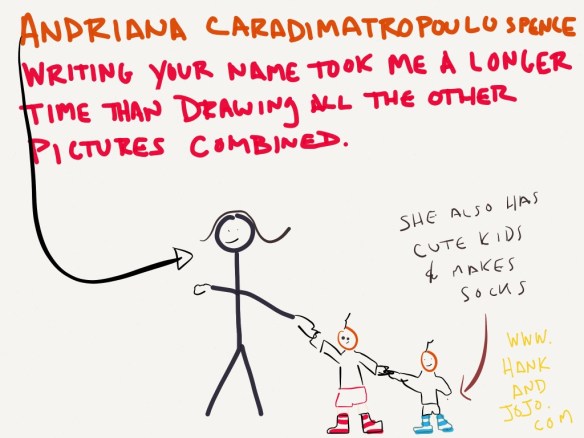 ANDRIANA CARADIMATROPOULO SPENCE
WRITING YOUR NAME TOOK ME A LONGER
TIME THAN DRAWING ALL THE OTHER
PICTURES COMBINED.
SHE ALSO HAS
CUTE KIDS
& MAKES
SOCKS
WWW.
HANK
AND
JOJO.
COM